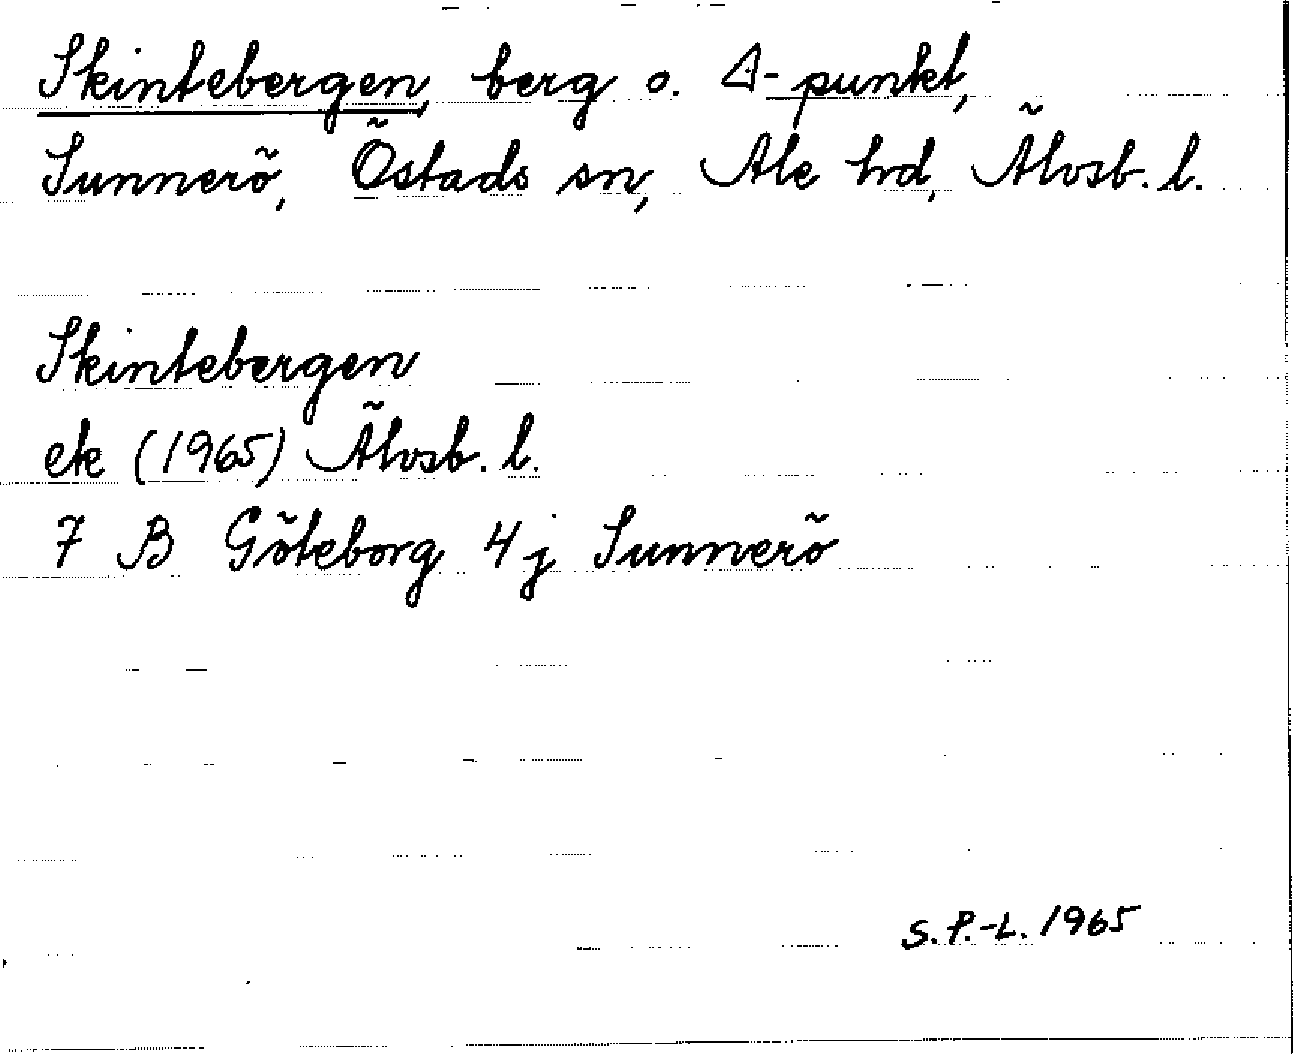 Skintebergen, berg o. Δ-punkt,
Sunnerö, Östads sn, Ale hd, Älvsb. l.
Skintebergen
ek (1965) Älvsb. l.
7 B Göteborg 4j Sunnerö
S.P.-L. 1965